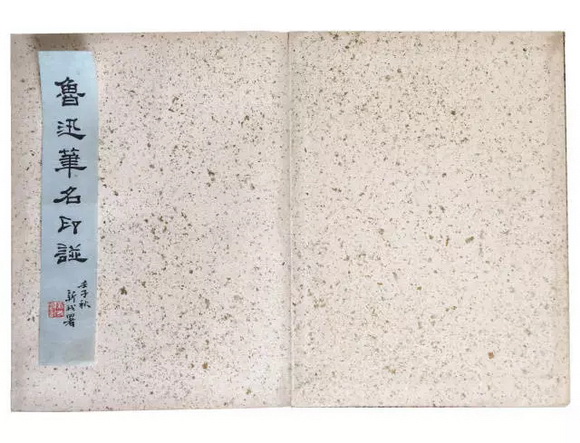 魯迅筆名印譜
壬子秋
新我署